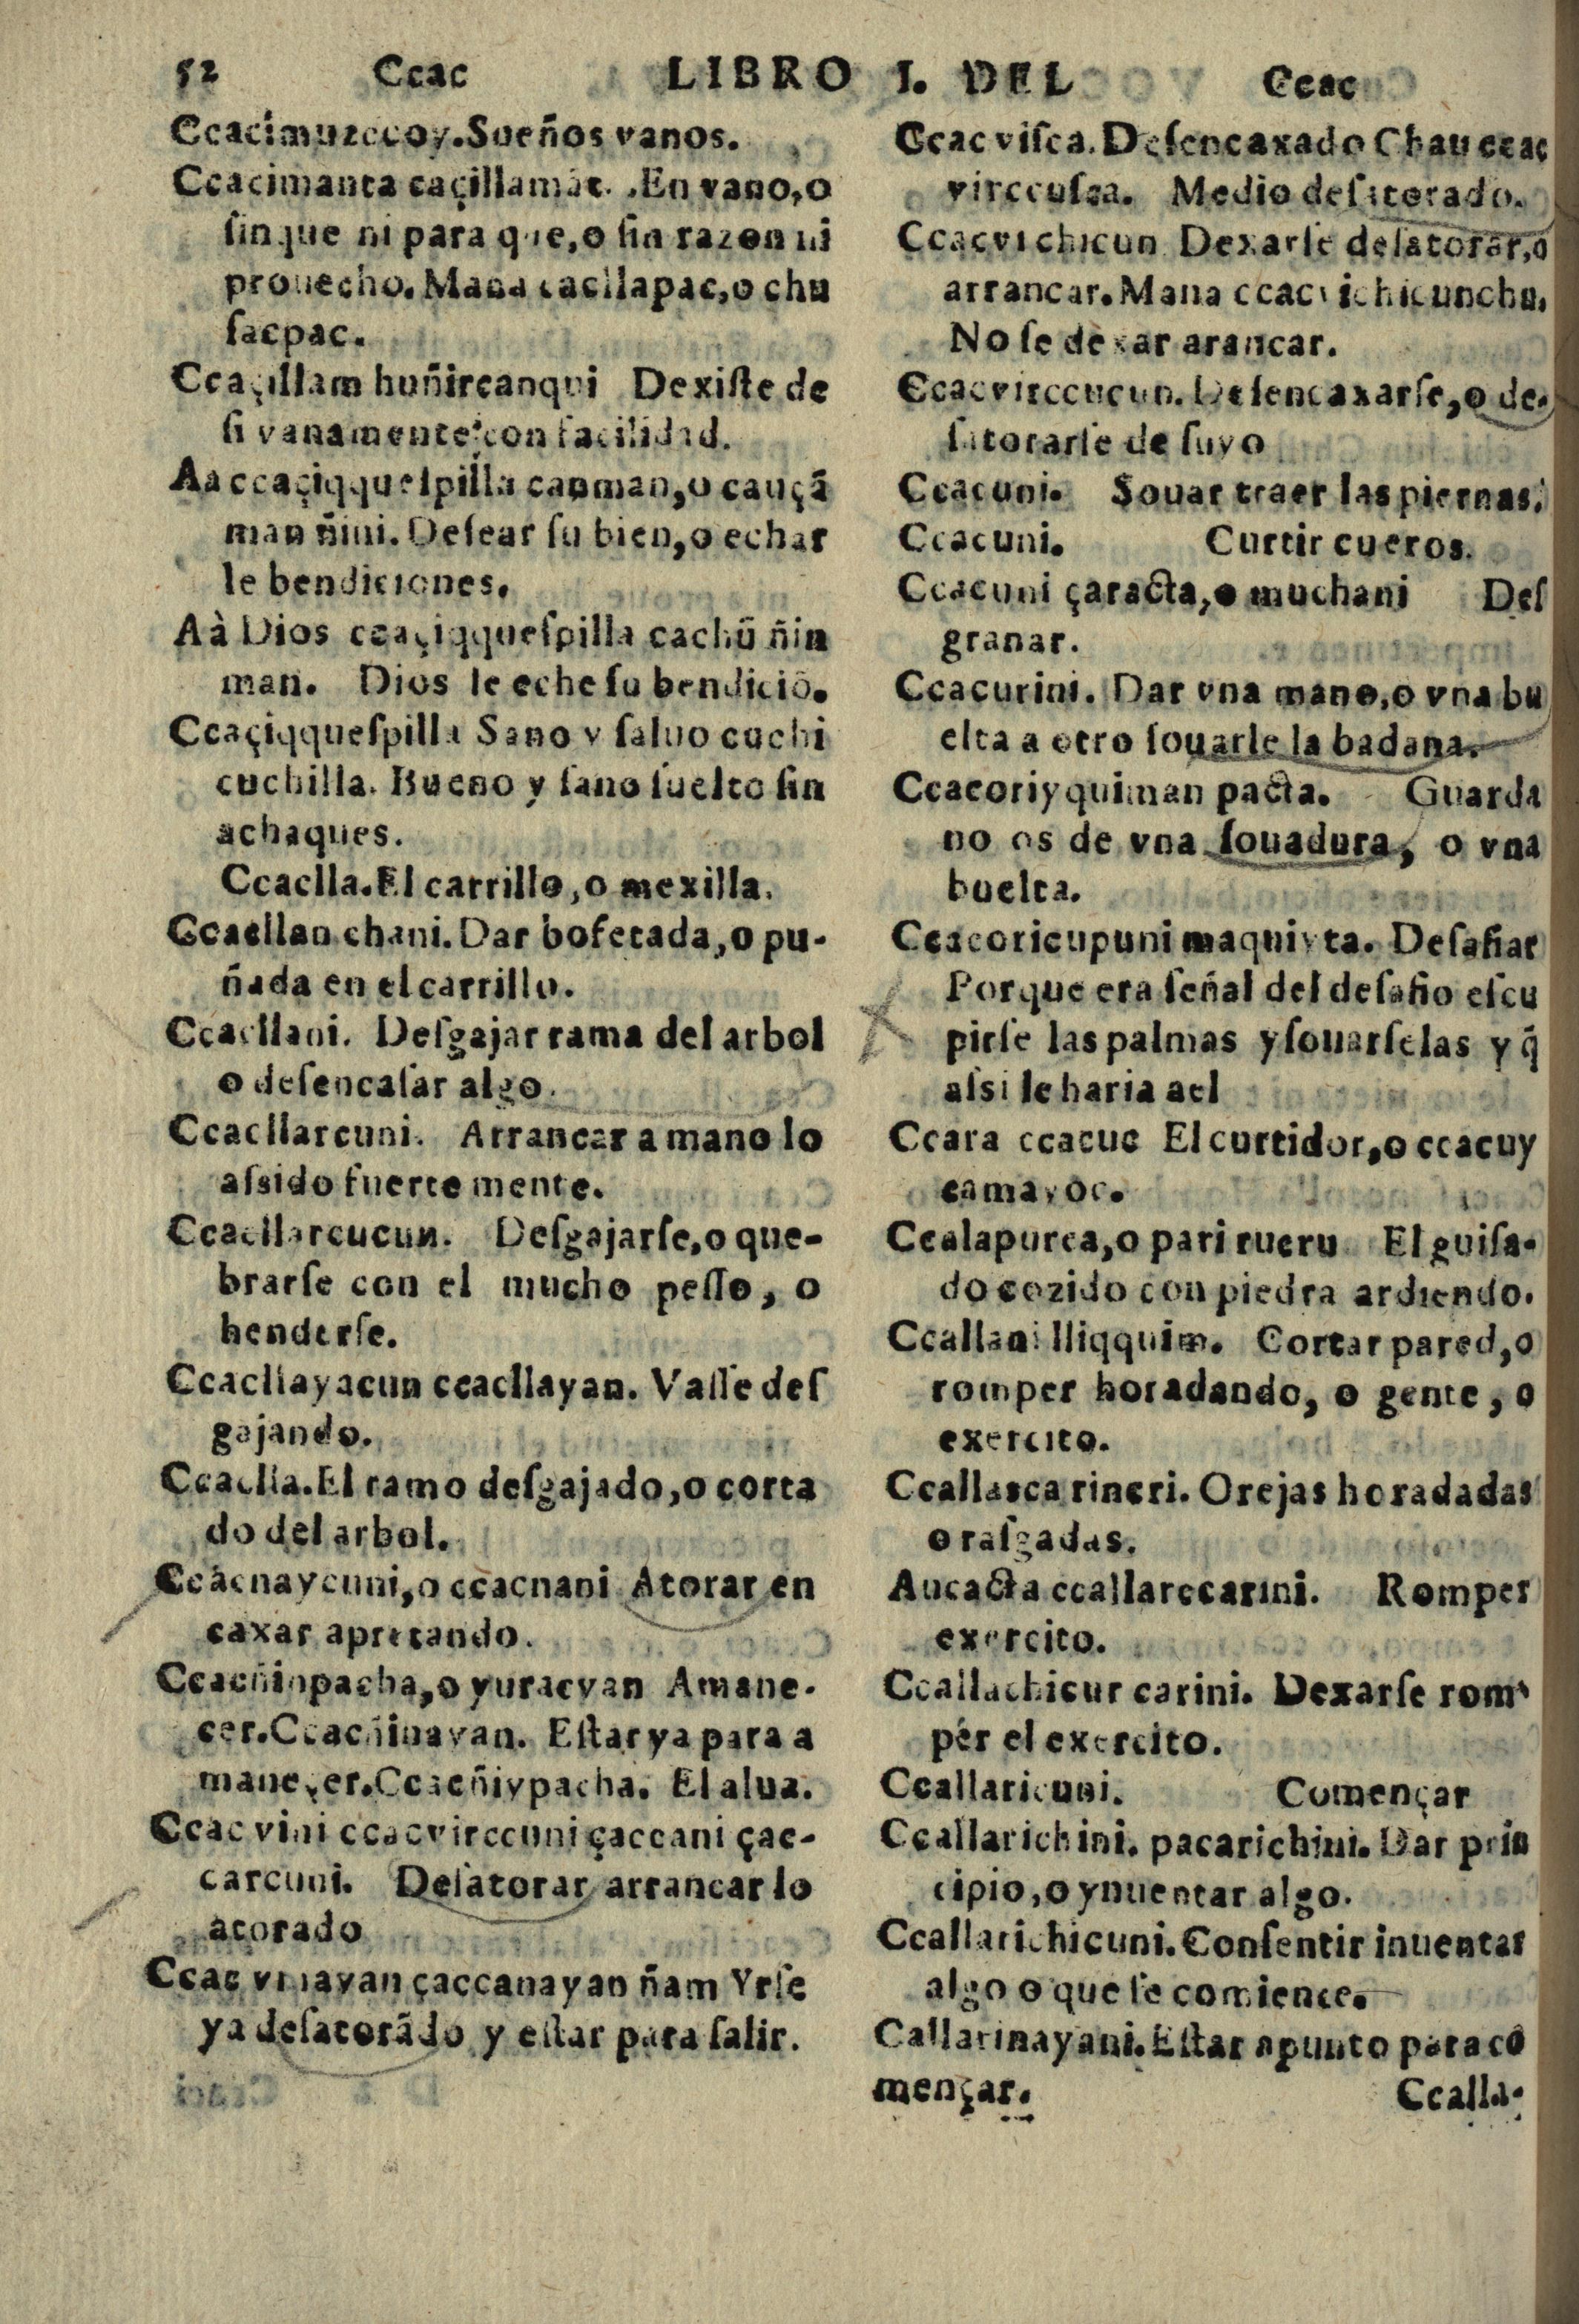 52 Ccac LIBRO I. DEL Ccac
Ccacimuzccoy. Sueños vanos.
Ccacimanta caçillamãt. .En vano,o
ſin que ni para que,o ſin razon ni
prouecho. Mana cacllapac,o chu
ſacpac.
Ccaçıllam huñircanqui Dexiſte de
ſi vanamente con facilidad.
Aa ccaçiqqueſpilla canman,o cauçã
man ñini. Deſear ſu bien,o echar
le bendiciones.
Aà Dios ccaçiqqueſpilla cachũ ñin
man. Dios le eche ſu bendiciõ.
Ccaçiqqueſpilla Sano y ſaluo cuchi
cuchilla. Bueno y ſano ſuelto ſin
achaques.
Ccaclla. El carrillo,o mexilla.
Ccacllan chani. Dar bofetada,o pu-
ñada en el carrillo.
Ccacllani. Deſgajar rama del arbol
o deſencaſar algo.
Ccacllarcuni. Arrancar a mano lo
aſsido fuerte mente.
Ccacllarcucun. Deſgajarſe,o que-
brarſe con el mucho peſſo, o
henderſe.
Ccacllayacun ccacllayan. Vaſſe deſ
gajando.
Ccaclla. El ramo deſgajado,o corta
do del arbol.
Ccàcnaycuni,o ccacnani Atorar en
caxar apretando.
Ccacñinpacha,o yuracyan Amane-
cer. Ccacñinayan. Eſtar ya para a
maneçer. Ccacñiypacha. El alua.
Ccac vini ccacvirccuni çaccani çac-
carcuni. Deſatorar arrancar lo
atorado
Ccac vinayan çaccanayan ñam Yrſe
ya deſatorãdo y eſtar para ſalir.
Ccac viſca. Deſencaxado Chau ccac
virccuſca. Medio deſatorado.
Ccacvichicun Dexarſe deſatorar,o
arrancar. Mana ccacvichicunchu.
No ſe dexar arancar.
Ccacvirccucun. Deſencaxarſe,o de-
ſatorarſe de ſuyo
Ccacuni. Souar traer las piernas.
Ccacuni. Curtir cueros.
Ccacuni çaracta,o muchani Deſ
granar.
Ccacurini. Dar vna mano,o vna bu
elta a otro ſouarle la badana.
Ccacoriyquiman pacta. Guarda
no os de vna ſouadura, o vna
buelta.
Ccacoricupuni maquiyta. Deſafiar
Porque era ſeñal del deſafio eſcu
pirſe las palmas y ſouarſelas y q̃
aſsi le haria ael
Ccara ccacuc El curtidor,o ccacuy
camayoc.
Ccalapurca,o pari rucru El guiſa-
do cozido con piedra ardiendo.
Ccallani lliqquim. Cortar pared,o
romper horadando, o gente, o
exercito.
Ccallasca rincri. Orejas horadadas
o raſgadas.
Aucacta ccallarccarini. Romper
exercito.
Ccallachicur carini. Dexarſe rom
per el exercito.
Ccallaricuni. Començar
Ccallarichini. pacarichini. Dar prin
cipio,o ynuentar algo.
Ccallarichicuni. Conſentir inuentar
algo o que ſe comience.
Callarinayani. Eſtar apunto para cõ
mençar. Ccalla-